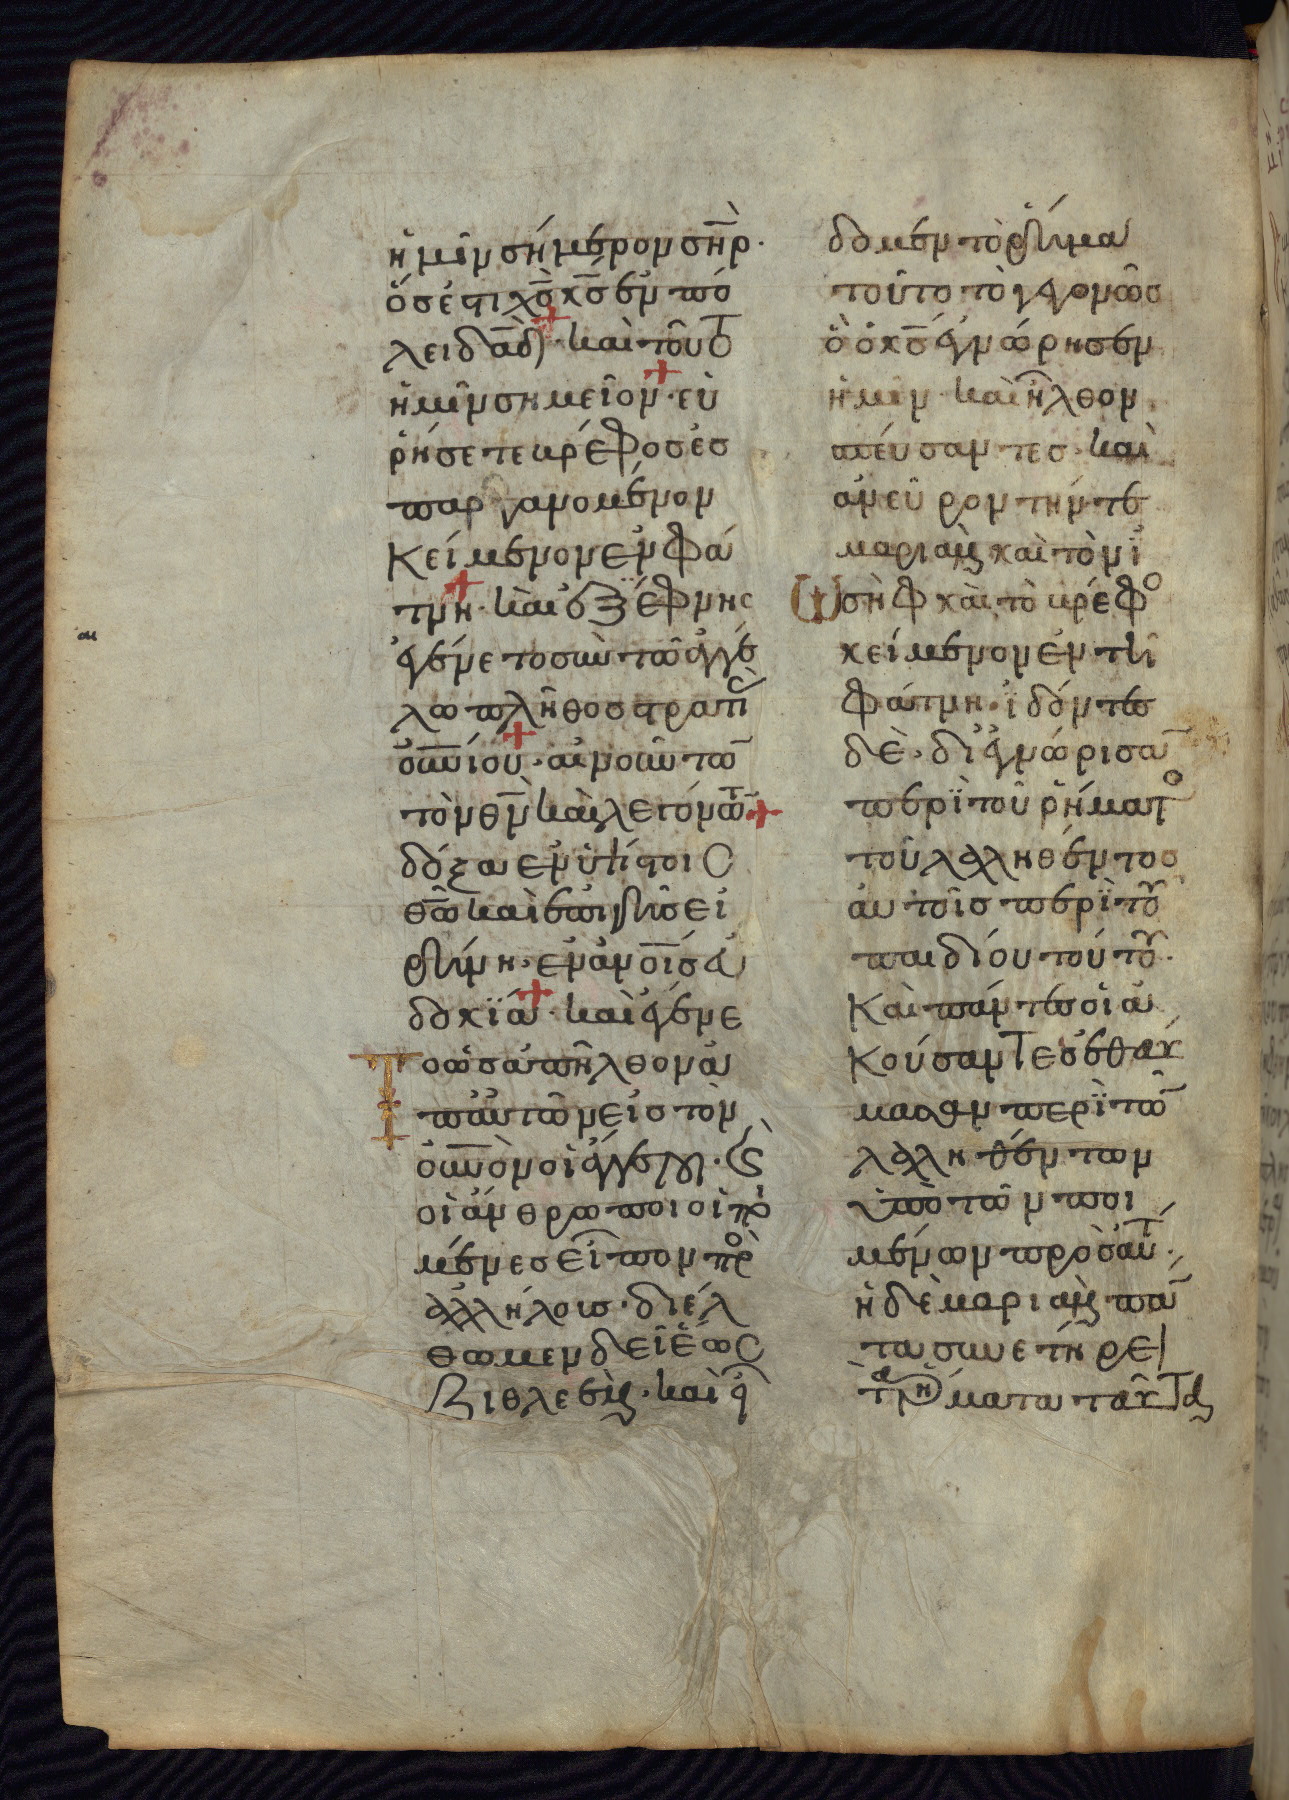 ἡμῖν σήμερον σ̅η̅ρ̅.
ὅς ἐστι χ̅ς̅ κ̅ς̅ ἐν πό
λει δ̅α̅δ̅. καὶ τοῦτ
ἡμῖν σημεῖον. εὑ
ρήσετε βρέφος ἐσ
παργανομένον
κείμενον ἐν φά
τνη. καὶ ἐξέφνης
ἐγένετο σὺν τῶ ἀγγέ
λω πλῆθος στρατι
ο̅υ̅ν̅ίου. αἰνούντω
τὸν θ̅ν̅ καὶ λεγόντω
δόξα ἐν ὑψίστοις
θ̅ω̅ καὶ ἐπὶ γῆς εἰ
ρήνη. ἐν ἀν̅ο̅ι̅ς̅ εὐ
δοκϊά. καὶ ἐγένε
το ὡς ἀπῆλθον ἀ
π' αὐτῶν εἰς τὸν
ο̅υ̅ν̅ὸν οἱ ἄγγελοι. καὶ
οἱ ἄνθρωποι οἱ ποι
μένες εἶπον πρὸ
ἀλλήλους. διέλ
θωμεν δεῖ ἕως
βιθλεέμ. καὶ ἴ
δομεν τὸ ρῆμα
τοῦτο τὸ γεγονῶς
ὃ ὁ κ̅ς̅ ἐγνώρησεν
ἡμῖν καὶ ἦλθον
σπεύσαντες. καὶ
ἀνεῦρον τήν τε
μαριὰμ καὶ τὸν ϊ
ωσὴφ καὶ τὸ βρέφο
κείμενον ἐν τῆ
φάτνη. ϊδόντες
δὲ. διεγνώρισα
περϊ τοῦ ῥήματο
τοῦ λαληθέντος
αὐτοῖς περϊ τοῦ
παιδίου τούτου.
Καὶ πάντες οἱ ἀ
κούσαντες ἐθαύ
μασαν περϊ τῶ
λαληθέντων
ὑπὸ τῶν ποι
μένων πρὸς αὐτ.
ἡ δὲ μαριὰμ πά
τα συνετήρει
τὰ ρήματα ταῦτα